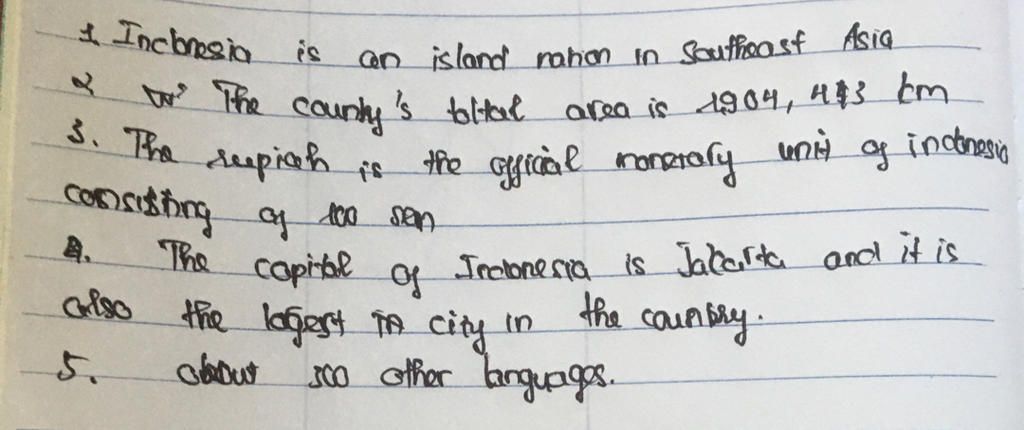 1. Indonesia is an island nation in Southeast Asia
2 The country's toltal area is 1,904, 443 km
3. The rupiah is the official monetary unit of indonesia
consisting of 100 sen
4. The capital of Indonesia is Jakarta and it is
also the lagest in city in the country.
5. about 300 other languages.